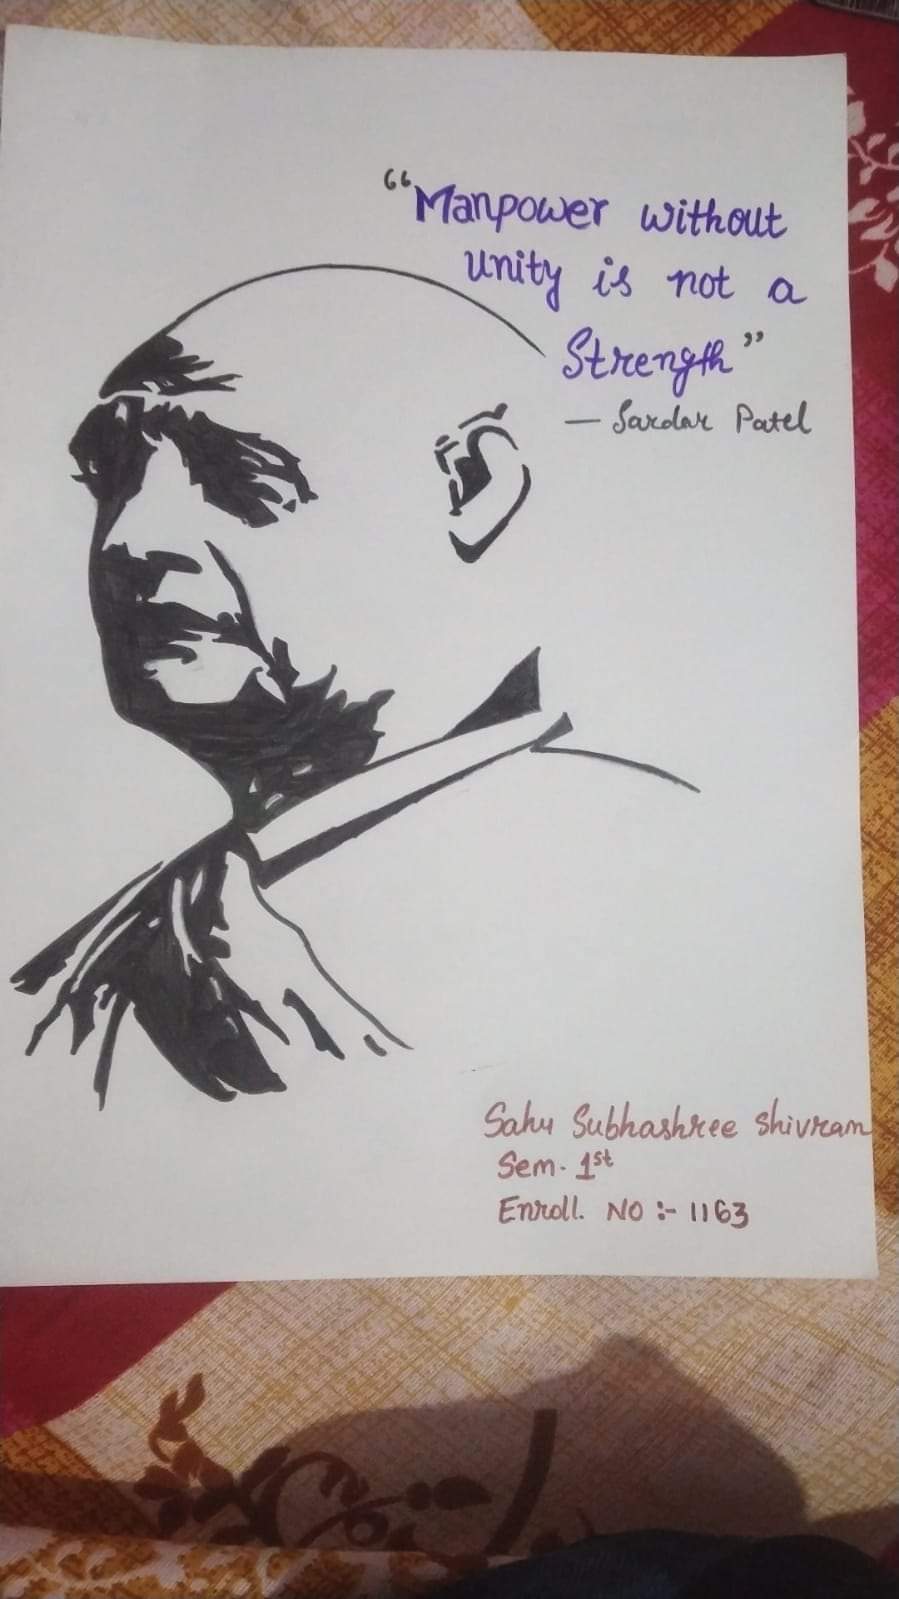 “Manpower without
Unity is not a
Strength”
— Sardar Patel
Sahu Subhashree Shivram
Sem. 1st
Enroll. No :- 1163